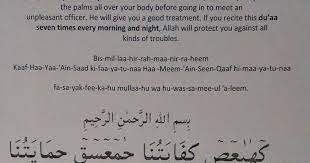 the palms all over your body before going in to meet an
unpleasant officer. He will give you a good treatment. If you recite this du'aa
seven times every morning and night, Allah will protect you against all
kinds of troubles.
Bis-mil-laa-hir-rah-maa-nir-ra-heem
Kaaf-Haa-Yaa-'Ain-Saad ki-faa-ya-tu-naa Haa -Meem-'Ain-Seen-Qaaf hi-maa-ya-tu-naa
fa-sa-yak-fee-ka-hu mullaa-hu wa hu-was-sa-mee-ul 'a-leem.
بِسْمِ اللهِ الرَّحْمٰنِ الرَّحِيْمِ
كٓهٰيٰعٓصٓ كِفَايَتُنَا حٰمٓعٓسٓقٓ حِمَايَتُنَا